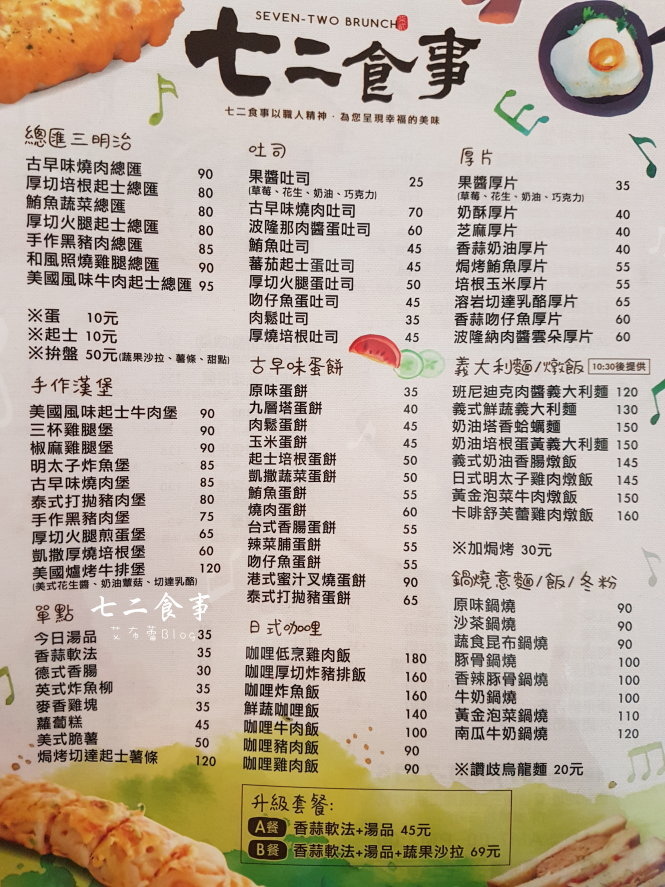 SEVEN-TWO BRUNCH
七二食事
七二食事以職人精神，為您呈現幸福的美味
總匯三明治
古早味燒肉總匯 90
厚切培根起士總匯 80
鮪魚蔬菜總匯 80
厚切火腿起士總匯 80
手作黑豬肉總匯 85
和風照燒雞腿總匯 90
美國風味牛肉起士總匯 95
※蛋 10元
※起士 10元
※拚盤 50元(蔬果沙拉、薯條、甜點)
手作漢堡
美國風味起士牛肉堡 90
三杯雞腿堡 90
椒麻雞腿堡 90
明太子炸魚堡 85
古早味燒肉堡 85
泰式打拋豬肉堡 80
手作黑豬肉堡 75
厚切火腿煎蛋堡 65
凱撒厚燒培根堡 60
美國爐烤牛排堡 120
(美式花生醬、奶油蕈菇、切達乳酪)
單點
今日湯品 35
香蒜軟法 35
德式香腸 30
英式炸魚柳 35
麥香雞塊 35
蘿蔔糕 45
美式脆薯 50
焗烤切達起士薯條 120
吐司
果醬吐司 25
(草莓、花生、奶油、巧克力)
古早味燒肉吐司 70
波隆那肉醬蛋吐司 60
鮪魚吐司 45
蕃茄起士蛋吐司 45
厚切火腿蛋吐司 50
吻仔魚蛋吐司 45
肉鬆吐司 35
厚燒培根吐司 45
古早味蛋餅
原味蛋餅 35
九層塔蛋餅 40
肉鬆蛋餅 45
玉米蛋餅 45
起士培根蛋餅 50
凱撒蔬菜蛋餅 50
鮪魚蛋餅 55
燒肉蛋餅 60
台式香腸蛋餅 55
辣菜脯蛋餅 55
吻仔魚蛋餅 55
港式蜜汁叉燒蛋餅 90
泰式打拋豬蛋餅 65
日式咖哩
咖哩低烹雞肉飯 180
咖哩厚切炸豬排飯 160
咖哩炸魚飯 160
鮮蔬咖哩飯 140
咖哩牛肉飯 100
咖哩豬肉飯 90
咖哩雞肉飯 90
厚片
果醬厚片 35
(草莓、花生、奶油、巧克力)
奶酥厚片 40
芝麻厚片 40
香蒜奶油厚片 40
焗烤鮪魚厚片 55
培根玉米厚片 55
溶岩切達乳酪厚片 65
香蒜吻仔魚厚片 60
波隆納肉醬雲朵厚片 60
義大利麵/燉飯 10:30後提供
班尼迪克肉醬義大利麵 120
義式鮮蔬義大利麵 130
奶油塔香蛤蠣麵 150
奶油培根蛋黃義大利麵 150
義式奶油香腸燉飯 145
日式明太子雞肉燉飯 145
黃金泡菜牛肉燉飯 150
卡啡舒芙蕾雞肉燉飯 160
※加焗烤 30元
鍋燒意麵/飯/冬粉
原味鍋燒 90
沙茶鍋燒 90
蔬食昆布鍋燒 90
豚骨鍋燒 100
香辣豚骨鍋燒 100
牛奶鍋燒 100
黃金泡菜鍋燒 110
南瓜牛奶鍋燒 120
※讚歧烏龍麵 20元
升級套餐:
A餐 香蒜軟法+湯品 45元
B餐 香蒜軟法+湯品+蔬果沙拉 69元
七二食事
艾布蕾Blog